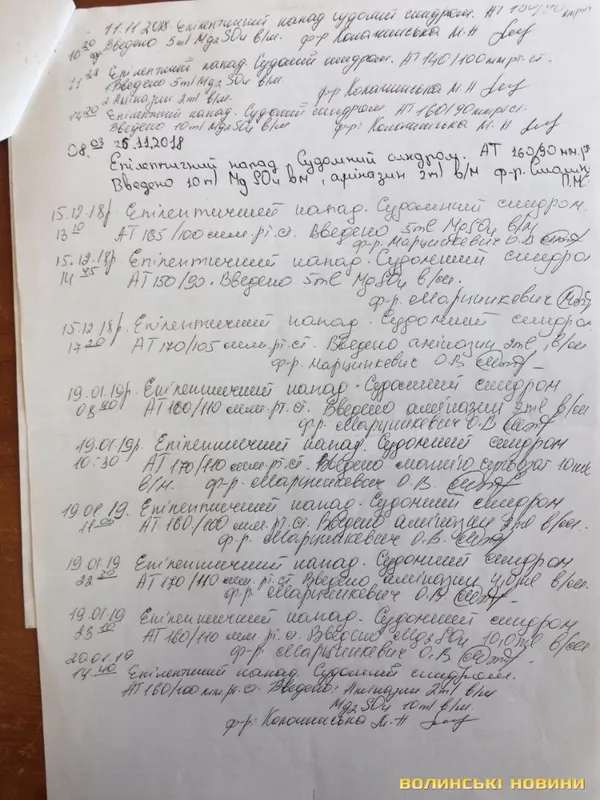 11.11.2018 Епілептичний напад Судомий синдром. АТ
10 20 Введено 5ml Mg2SO4 в/м. ф-р Колошинська М.Н
11 20 Епілептичний напад. Судомий синдром. АТ 140/100 мм рт. ст.
Введено 5ml Mg2SO4 в/м.
Аміназин 2ml в/м. ф-р Колошинська М.Н
14 20 Епілептичний напад. Судомий синдром. АТ 160/90 мм рт ст.
Введено 10ml Mg2SO4 в/м ф-р: Колошинська М.Н
08.03 25.11.2018
Епілептичний напад, Судомний синдром. АТ 160/90 мм.р
Введено 10ml MgSO4 вм, аміназин 2ml в/м ф-р.
15.12.18р. Епілептичний напад. Судомний синдром.
13 10 АТ 165/100 мм.рт.ст. Введено 5ml MgSO4 в/м
ф-р. Марцинкевич О.В
15.12.18р. Епілептичний напад. Судомний синдром
14 25 АТ 150/90. Введено 5ml Mg2SO4 в/м.
ф-р. Марцинкевич
15.12.18р. Епілептичний напад. Судомний синдром
17 20 АТ 170/105 мм.рт.ст. Введено аміназин 2ml в/м
ф-р. Марцинкевич О.В
19.01.19р. Епілептичний напад. Судомний синдром
АТ 160/110 мм. рт.ст. Введено аміназин 2ml в/м
ф-р. Марцинкевич О.В
19.01.19р. Епілептичний напад. Судомний синдром
10:30 АТ 170/110 мм.рт.ст. Введено магнію сульфат 10ml
в/м. ф-р. Марцинкевич О.В.
19.01.19. Епілептичний напад. Судомний синдром
АТ 160/100 мм.рт.ст. Введено аміназин 2ml в/м.
ф-р. Марцинкевич О.В.
19.01.19 Епілептичний напад. Судомний синдром
АТ 170/110 мм.рт.ст. Введено аміназин в/м.
ф-р. Марцинкевич О.В
19.01.19 Епілептичний напад. Судомний синдром
АТ 160/110 мм.рт.ст. Введено Mg2SO4 10,0ml в/м
ф-р. Марцинкевич О.В
20.01.19
14 40 Епілептичний напад. Судомий синдром.
АТ 160/100 мм.рт.ст. Введено: Аміназин 2ml в/м
Mg2SO4 10ml в/м.
ф-р: Колошинська М.Н
ВОЛИНСЬКІ НОВИНИ